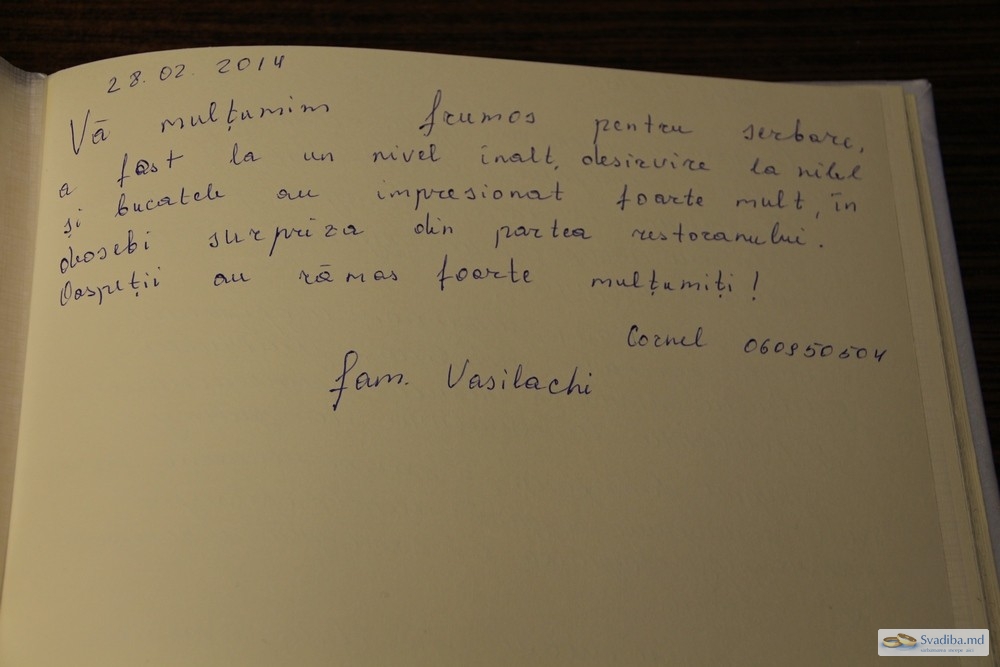 28.02.2014
Vă mulțumim frumos pentru serbare,
a fost la un nivel înalt, desirvire la nivel
și bucatele au impresionat foarte mult, în
deosebi surpriza din partea restoranului.
Oaspeții au rămas foarte mulțumiți!
Cornel 060950504
fam. Vasilachi
Svadiba.md